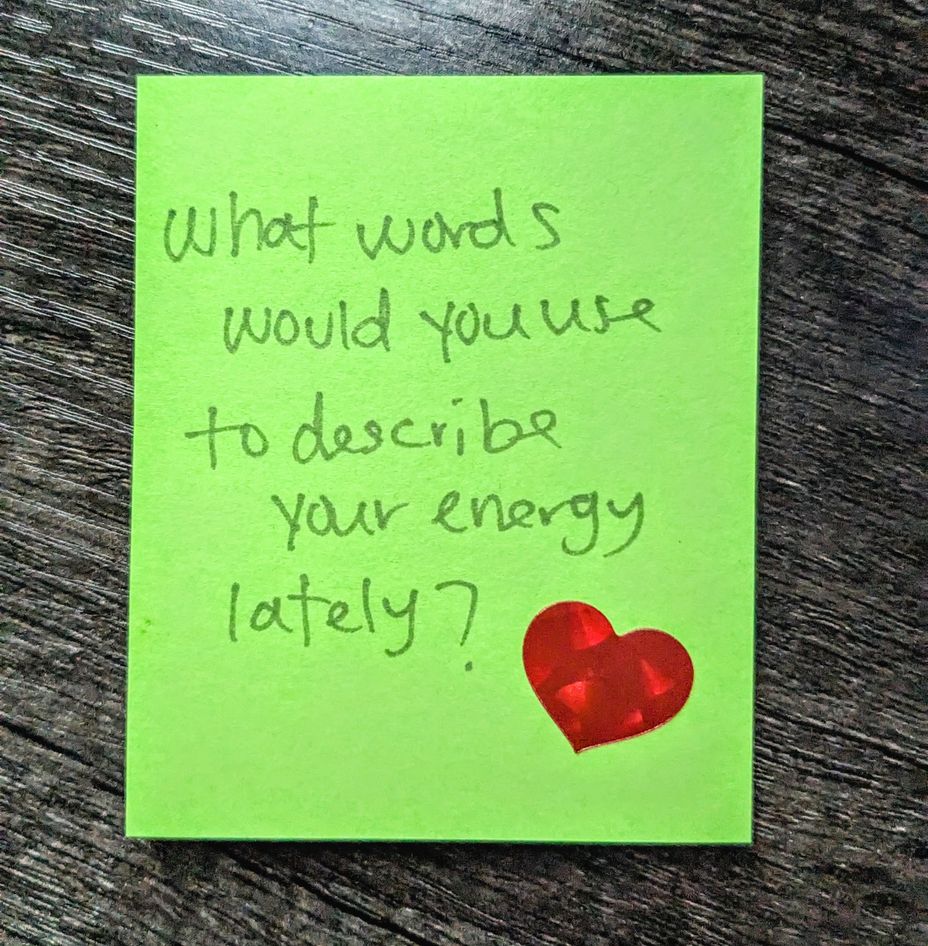 What words
would you use
to describe
your energy
lately?